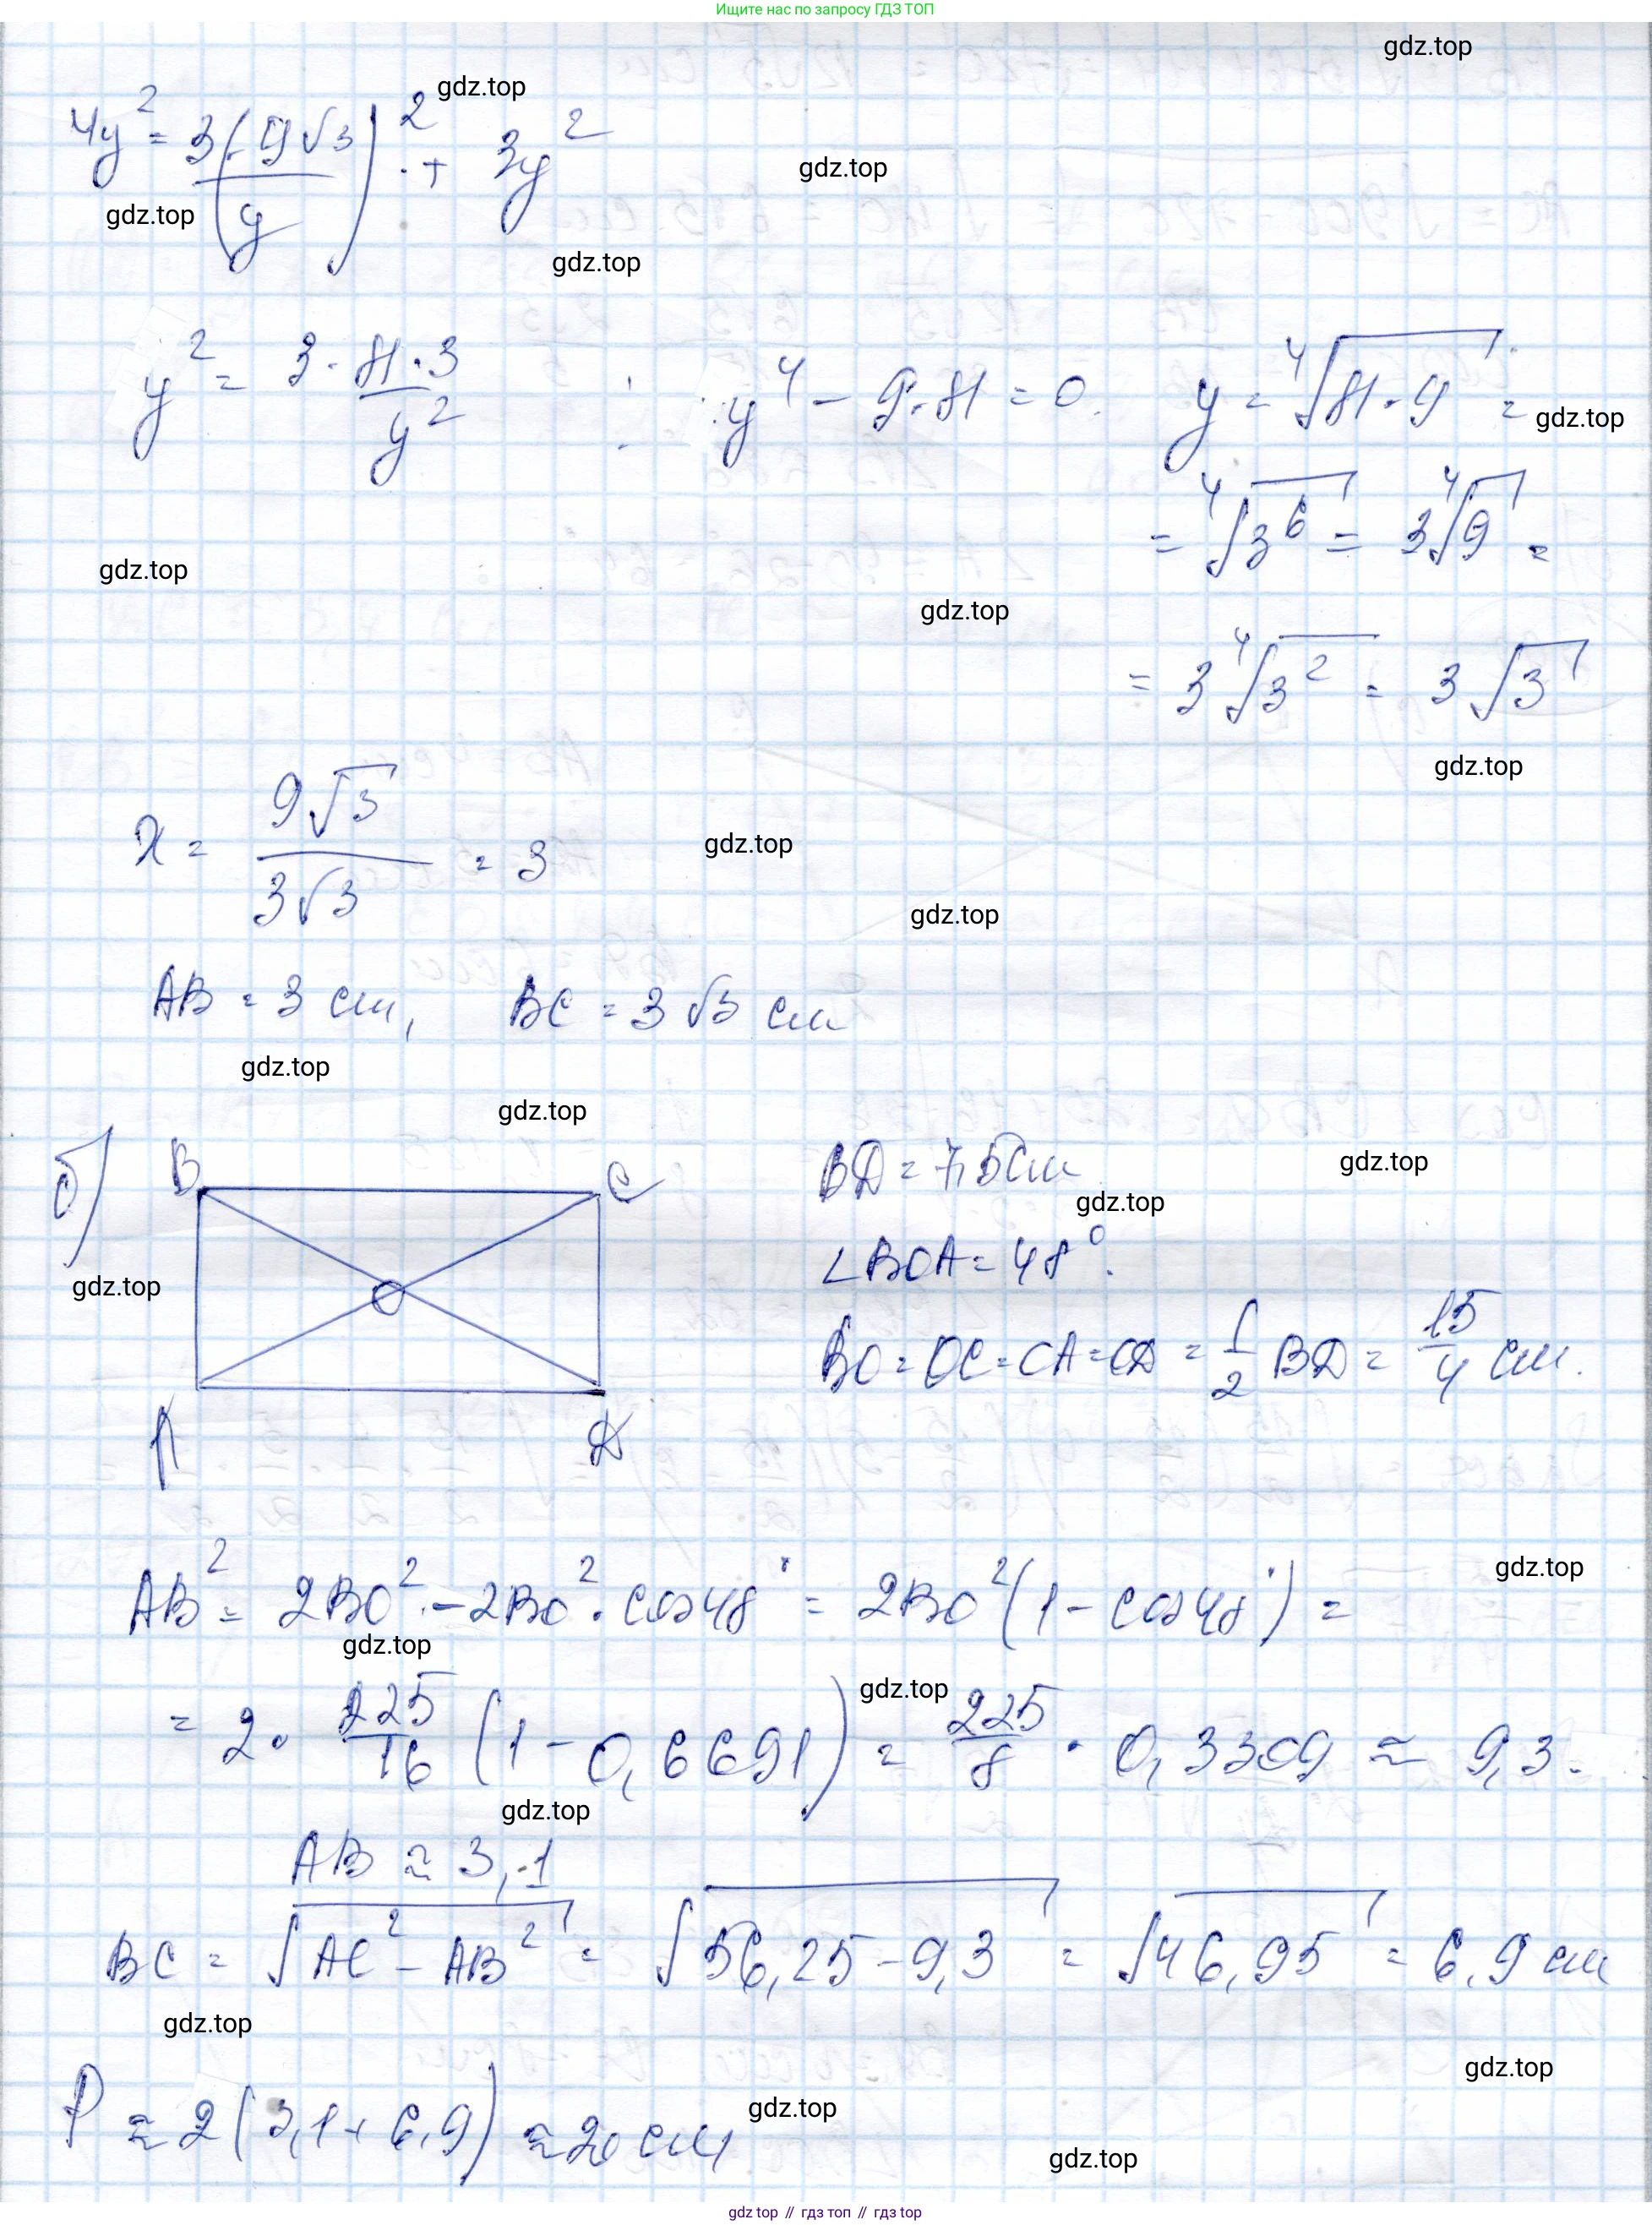 Ищите нас по запросу ГДЗ ТОП
gdz.top
gdz.top
4y² = 3(9√3/y)² + 3y²
gdz.top
gdz.top
gdz.top
y² = 3·81·3/y²    y⁴ - 9·81 = 0.    y = ⁴√81·9 =
gdz.top
= ⁴√3⁶ = 3⁴√9 =
gdz.top
gdz.top
= 3⁴√3² = 3√3
gdz.top
x = 9√3/3√3 = 3
gdz.top
gdz.top
AB = 3 см, BC = 3√3 см
gdz.top
gdz.top
б) B C
BD = 7,5 см
gdz.top
gdz.top
∠BOA = 48°.
gdz.top
O
BO = OC = OA = OD = 1/2 BD = 15/4 см.
A D
AB² = 2BO² - 2BO² · cos48° = 2BO²(1 - cos48°) =
gdz.top
gdz.top
= 2 · 225/16 (1 - 0,6691) = 225/8 · 0,3309 ≈ 9,3.
gdz.top
gdz.top
AB ≈ 3,1
BC = √AC² - AB² = √56,25 - 9,3 = √46,95 = 6,9 см
gdz.top
gdz.top
P ≈ 2(3,1 + 6,9) ≈ 20 см
gdz.top
gdz.top
gdz top // гдз топ // гдз top